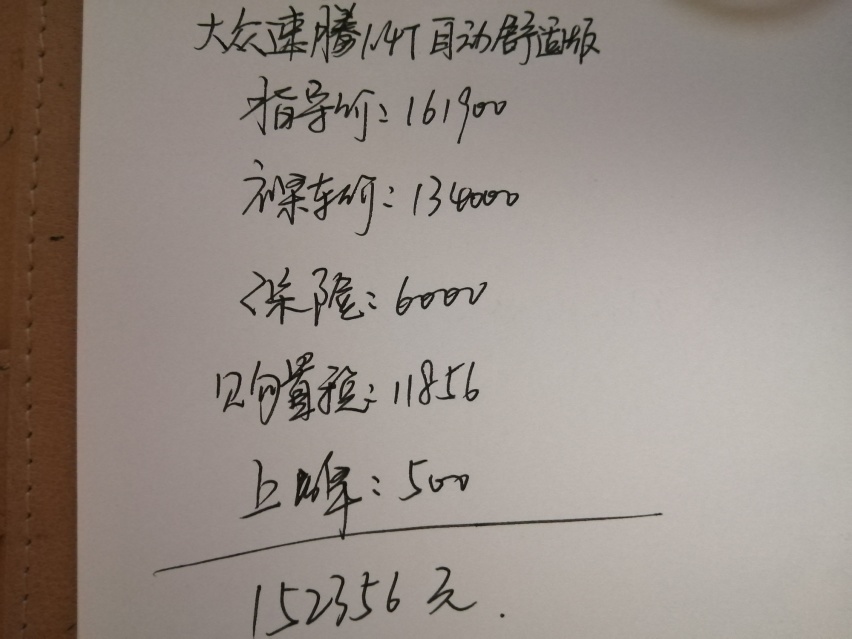 大众速腾1.4T自动舒适版
指导价：161900
裸车价：134000
保险：6000
购置税：11856
上牌：500
152356元.